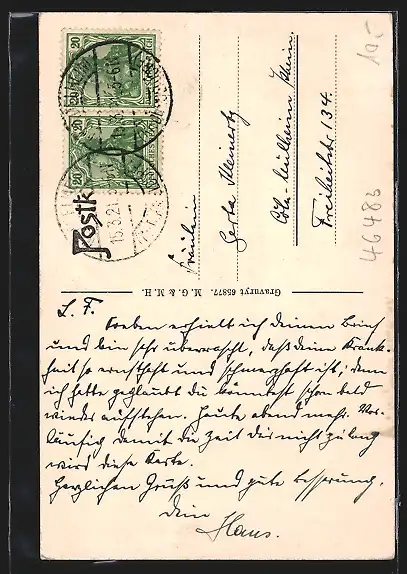 Postk
Fräulein
Gerta Meinertz
Cöln-Mülheim Rhein.
Freiheitstr. 134
46483
Gravuryt 65877. M. G. & M. H.
L. F.
Soeben erhielt ich deinen Brief
und bin sehr überrascht, daß deine Krank-
heit so ernsthaft und schmerzhaft ist, denn
ich hatte geglaubt du könntest schon bald
wieder aufstehen. Heute abend mehr. Vor-
läufig damit die Zeit dir nicht zu lang
wird diese Karte.
Herzlichen Gruß und gute Besserung,
Dein
Hans.
20
20
15.3.21